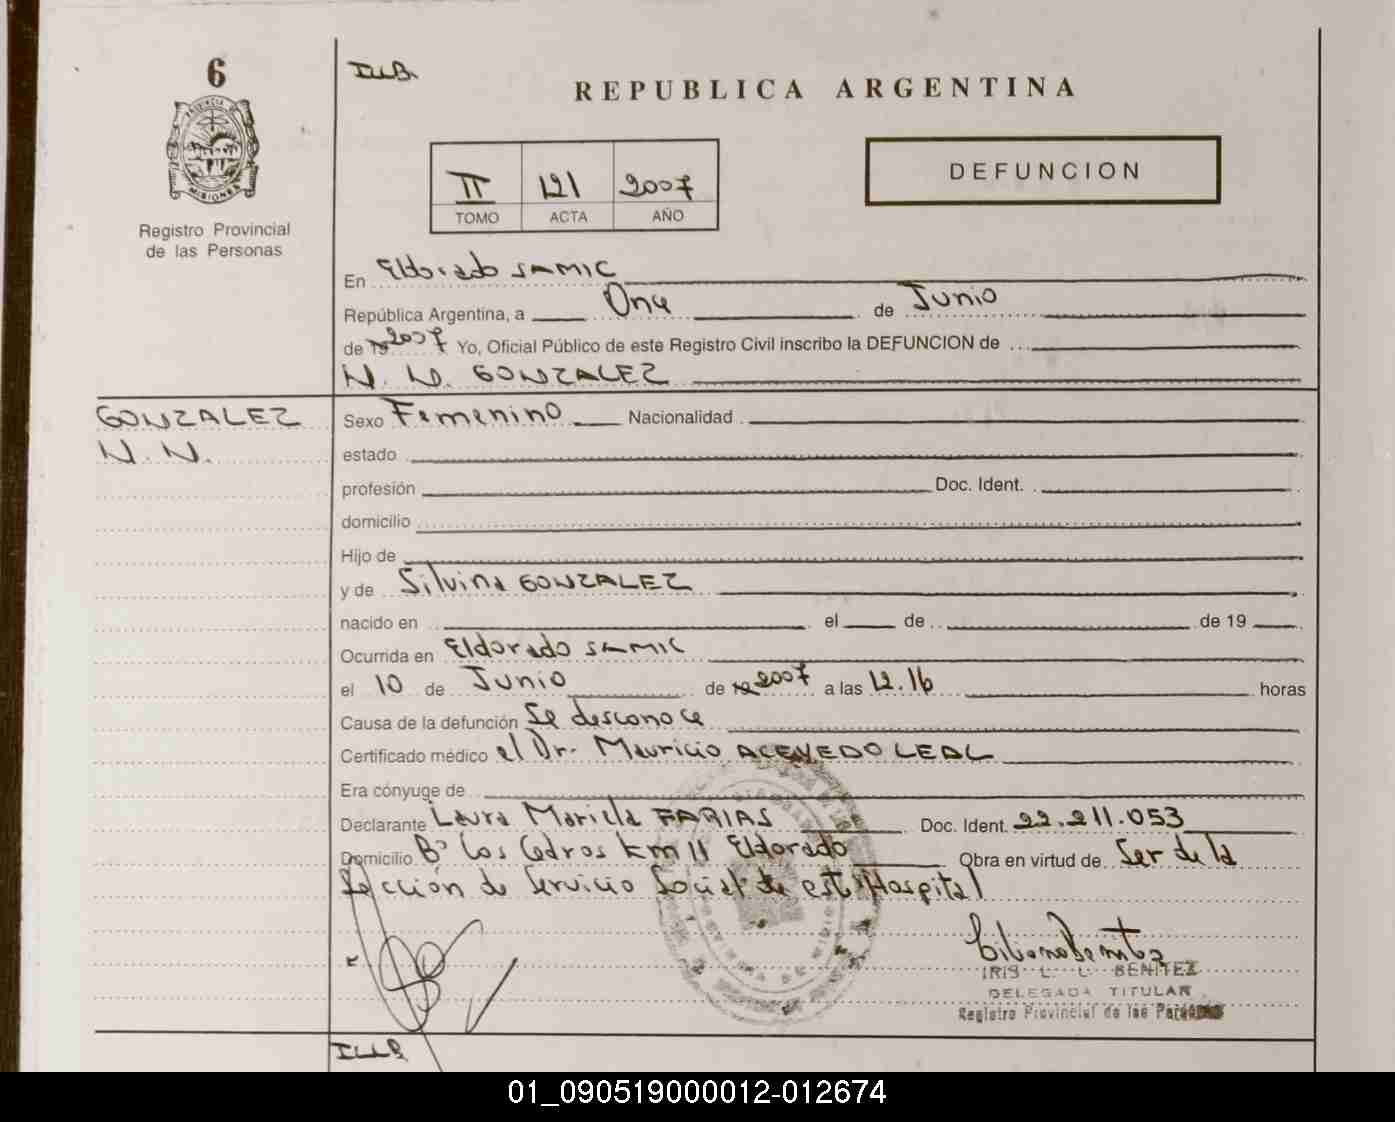 6
ILLB.
REPUBLICA ARGENTINA
PROVINCIA DE
MISIONES
Registro Provincial
de las Personas
II 121 2007
TOMO ACTA AÑO
DEFUNCION
En Eldorado SAMIC
República Argentina, a Once de Junio
de 19 2007 Yo, Oficial Público de este Registro Civil inscribo la DEFUNCION de
N. N. GONZALEZ
GONZALEZ
N. N.
Sexo Femenino Nacionalidad
estado
profesión Doc. Ident.
domicilio
Hijo de
y de Silvina GONZALEZ
nacido en el de de 19
Ocurrida en Eldorado SAMIC
el 10 de Junio de 19 2007 a las 12.16 horas
Causa de la defunción Se desconoce
Certificado médico el Dr. Mauricio ACEVEDO LEAL
Era cónyuge de
Declarante Laura Mariela FARIAS Doc. Ident. 22.211.053
Domicilio Bº Los Cedros km 11 Eldorado Obra en virtud de Ser de la
Sección de Servicio Social de este Hospital
IRIS L. L. BENITEZ
DELEGADA TITULAR
Registro Provincial de las Personas
ILLB
01_090519000012-012674